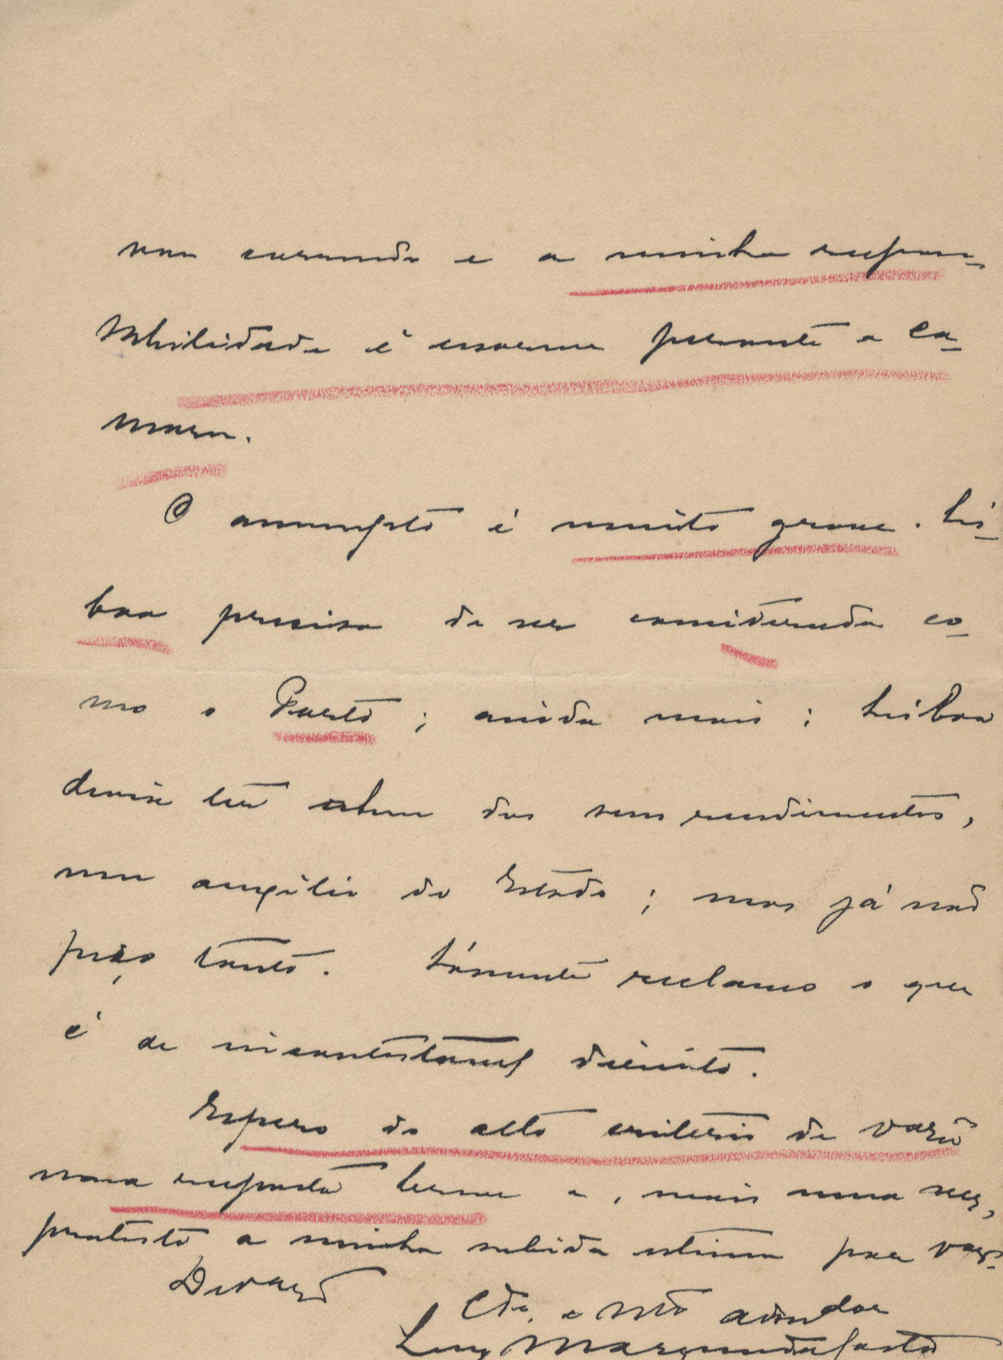 vou curando e a minha respon-
sabilidade é enorme perante a Ca-
mara.
O assumpto é muito grave. Lis-
boa precisa de ser considerada co-
mo o Porto; ainda mais: Lisboa
devia ter alem dos seus rendimentos,
um auxilio do Estado; mas já não
peço tanto. Sómente reclamo o que
é de incontestavel direito.
Espero do alto criterio de
uma resposta breve e, mais uma vez,
protesto a minha subida estima por
De
Cdo. e Mto admdor
Luiz